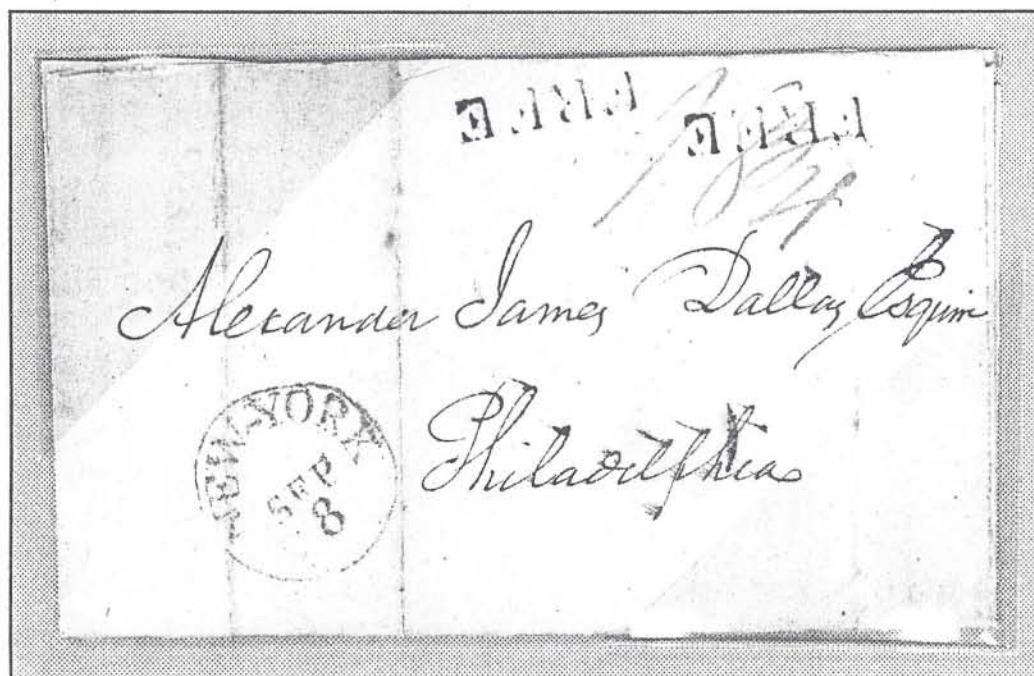 FREE FREE
Alexander James Dallas Esquire
Philadelphia
NEW-YORK
SEP
8